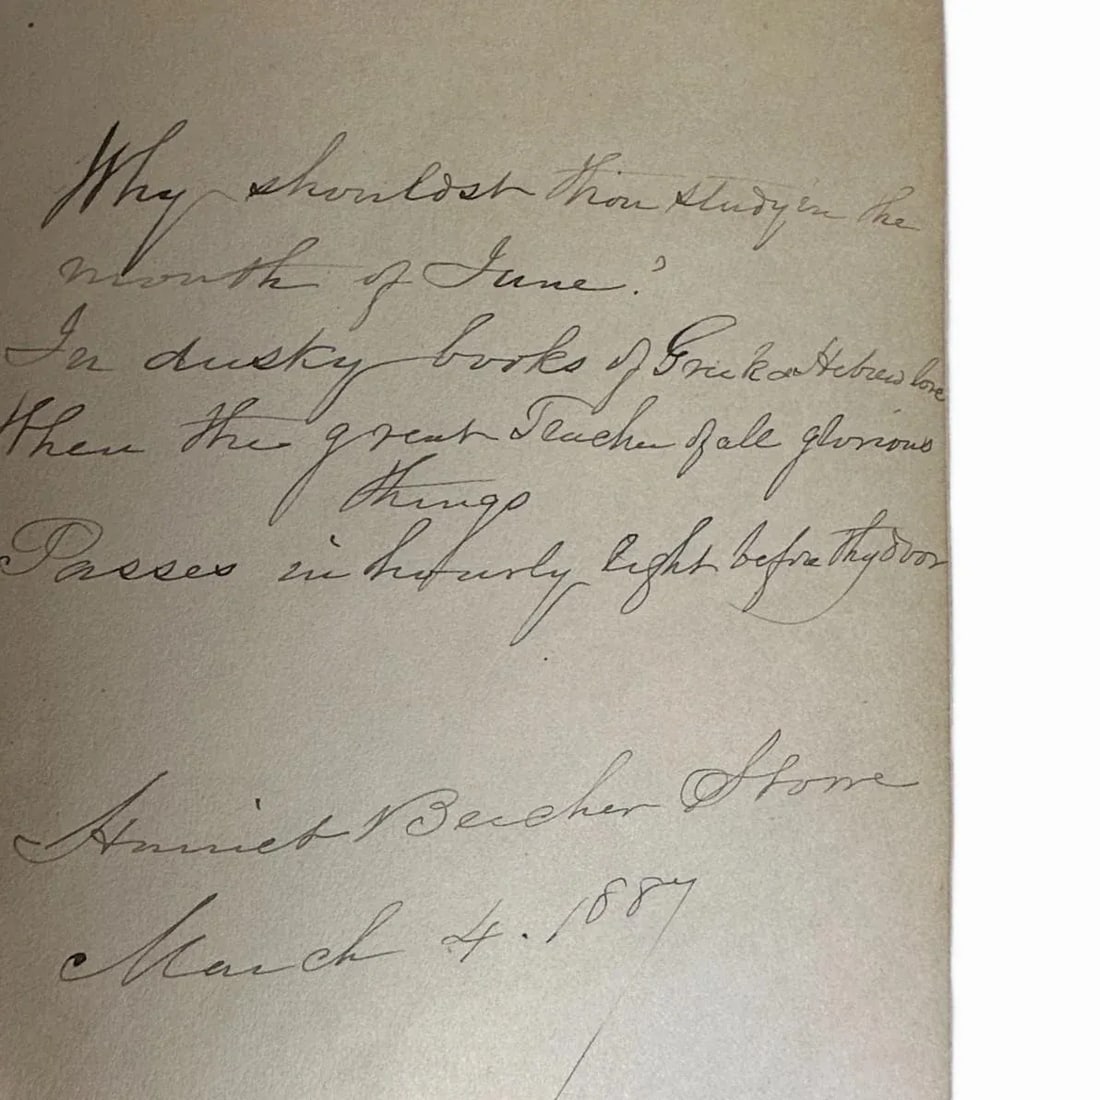 Why shouldst thou study in the
month of June?
In dusky books of Greek & Hebrew lore
When the great Teacher of all glorious
things
Passes in hourly light before thy door
Harriet Beecher Stowe
March 4. 1887